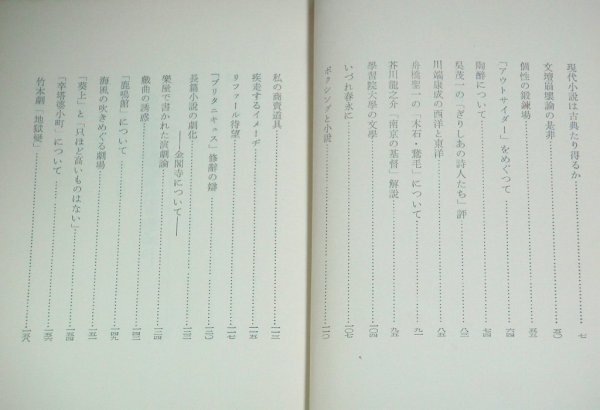 現代小説は古典たり得るか……七
文壇崩壊論の是非……五〇
個性の鍛錬場……五三
「アウトサイダー」をめぐつて……六四
陶醉について……七四
吳茂一の「ぎりしあの詩人たち」評……八三
川端康成の西洋と東洋……八五
舟橋聖一の「木石・鵞毛」について……九一
芥川龍之介「南京の基督」解説……九五
學習院大學の文學……一〇四
いづれ春永に……一〇七
ボクシングと小説……一一〇
私の商賣道具……一一三
疾走するイメーヂ……一一五
リファール待望……一一七
「ブリタニキュス」修辭の辯……一二〇
長篇小説の劇化——金閣寺について——……一二三
樂屋で書かれた演劇論……一二四
戯曲の誘惑……一四三
「鹿鳴館」について……一四九
海風の吹きめぐる劇場……一五一
「葵上」と「只ほど高いものはない」……一五四
「卒塔婆小町」について……一五六
竹本劇「地獄變」……一五八